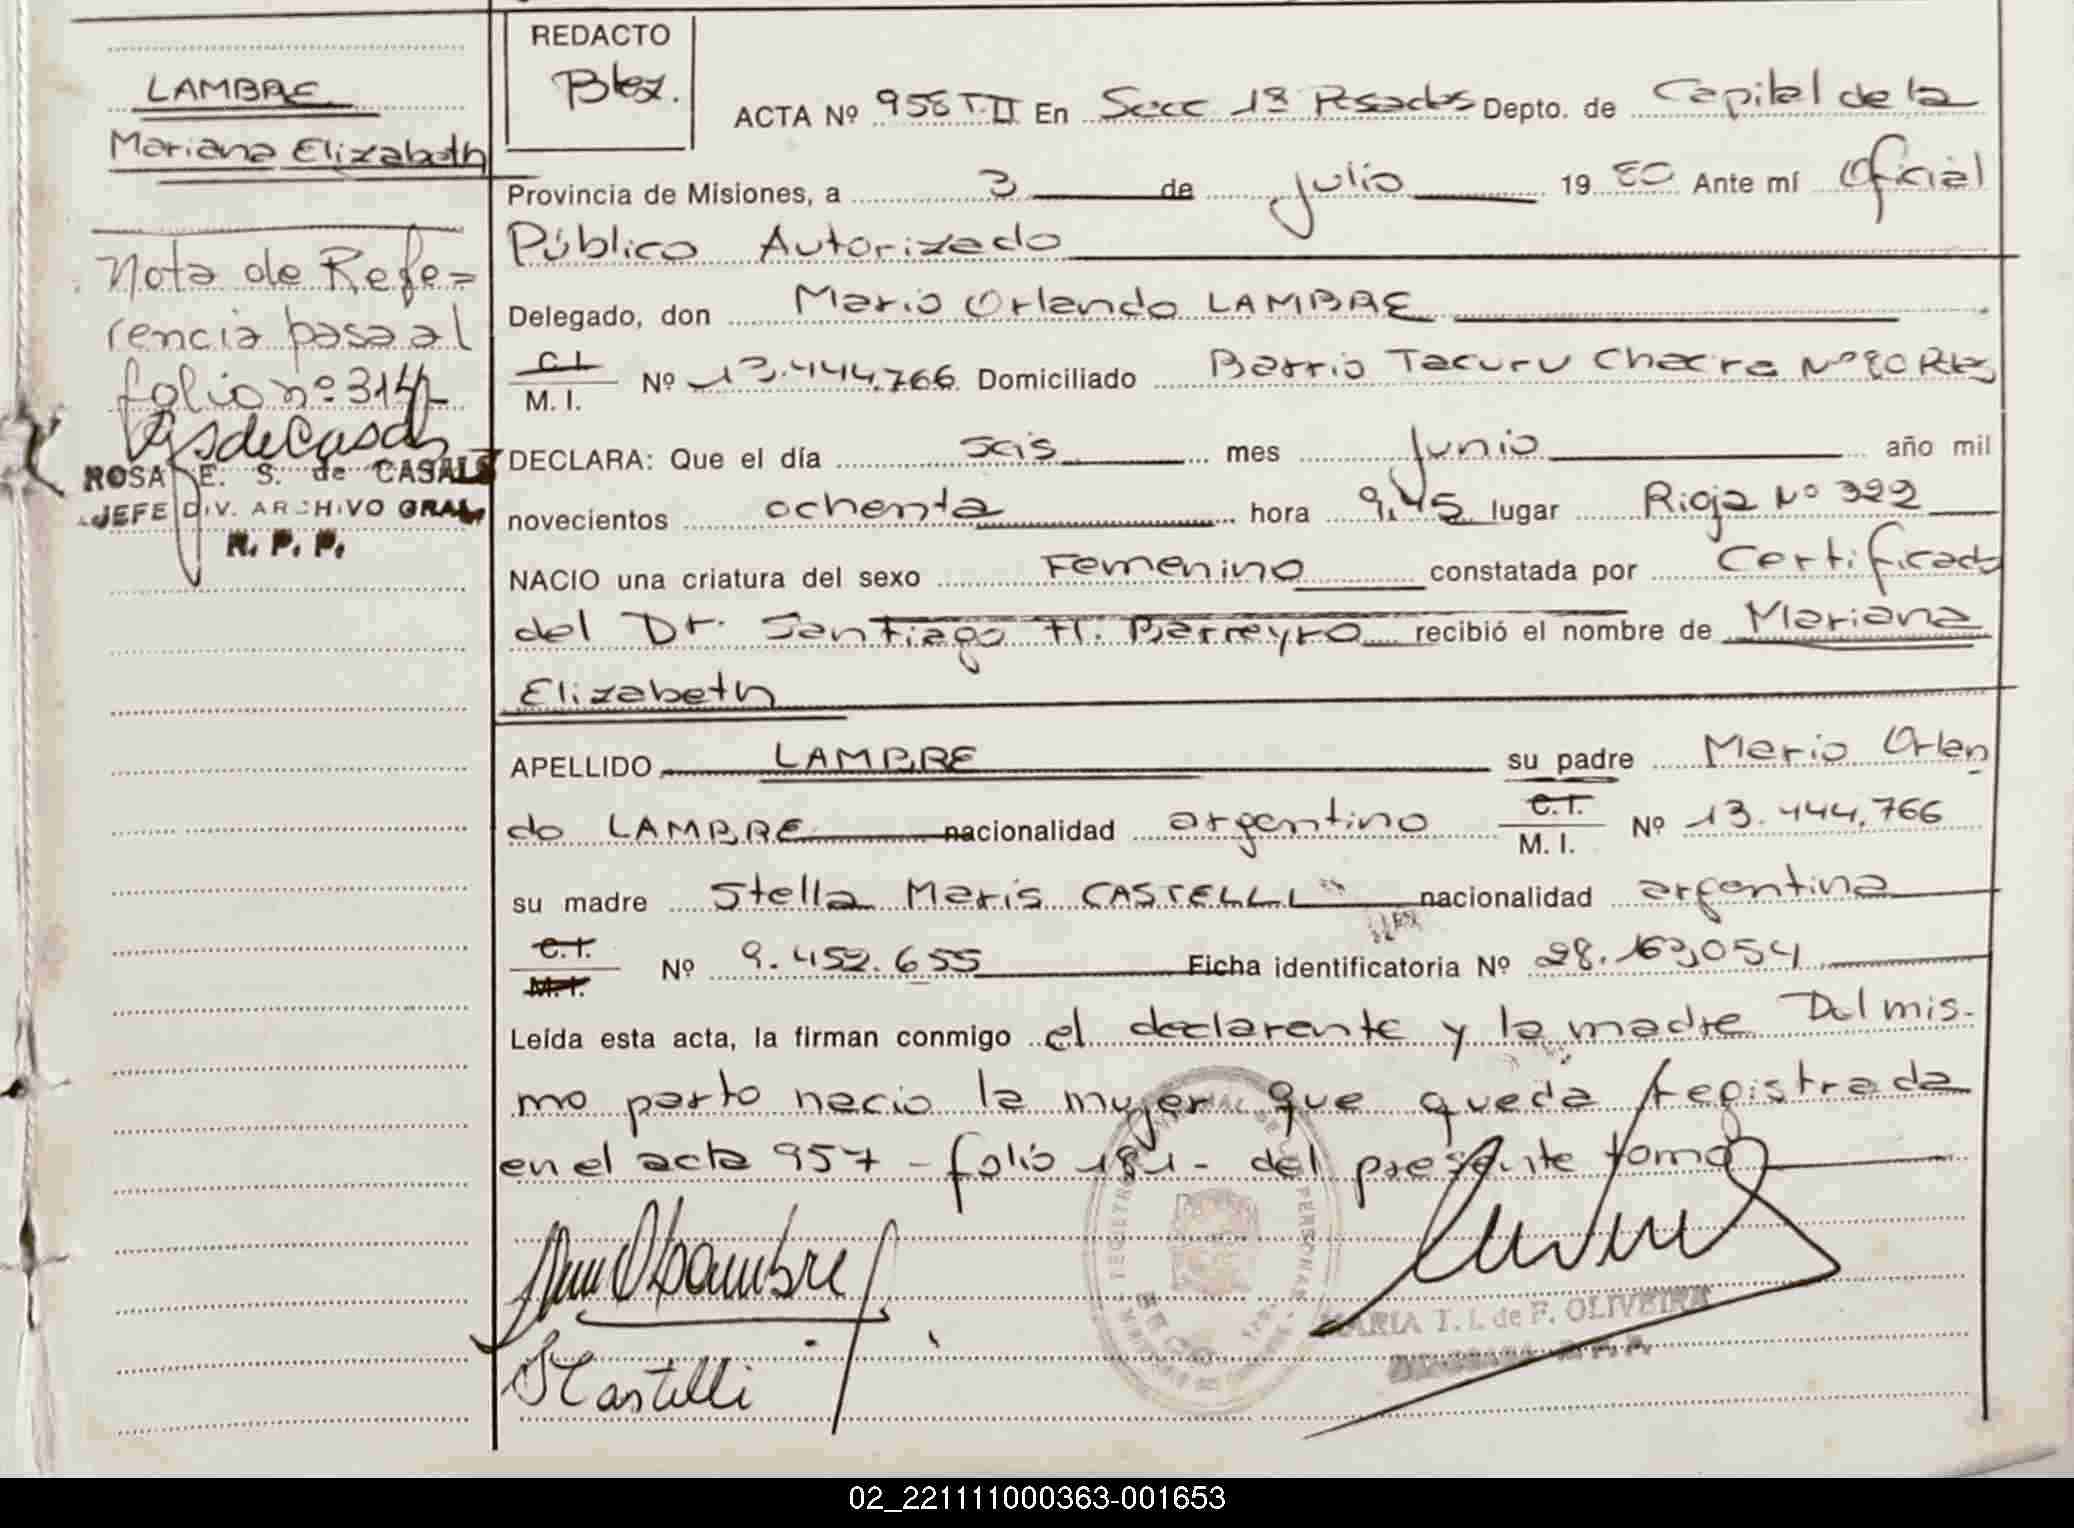 LAMBRE
Mariana Elizabeth
Nota de Refe=
rencia pasa al
folio nº 314
ROSA E. S. de CASALS
JEFE DIV. ARCHIVO GRAL.
R. P. P.
REDACTO
ACTA Nº 956 T.II En Secc 1ª Posadas Depto. de Capital de la
Provincia de Misiones, a 3 de julio 19 80 Ante mí Oficial
Público Autorizado
Delegado, don Mario Orlando LAMBRE
C.I. M. I. Nº 13.444.766 Domiciliado Barrio Tacuru Chacra Nº 80
DECLARA: Que el día seis mes junio año mil
novecientos ochenta hora 9,45 lugar Rioja Nº 322
NACIO una criatura del sexo Femenino constatada por Certificado
del Dr. Santiago H. Barreyro recibió el nombre de Mariana
Elizabeth
APELLIDO LAMBRE su padre Mario Orlan
do LAMBRE nacionalidad argentino C.I. M. I. Nº 13.444.766
su madre Stella Maris CASTELLI nacionalidad argentina
C.I. M.I. Nº 9.452.655 Ficha identificatoria Nº 28.163,054
Leída esta acta, la firman conmigo el declarante y la madre Del mis-
mo parto nacio la mujer que queda registrada
en el acta 957 - folio 181 - del presente tomo
Lambre
SCastelli
MARIA T. I. de F. OLIVEIRA
02_221111000363-001653